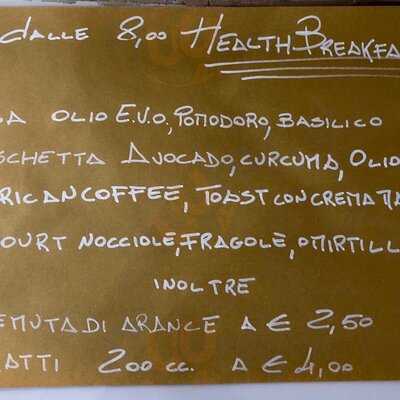 dALLE 8,00 HEALTH BREAKFA
OLIO E.V.O, POMODORO, BASILICO
SCHETTA AVOCADO, CURCUMA, OLIO
RICAN COFFEE, TOAST CON CREMA
OURT NOCCIOLE, FRAGOLE, O MIRTILL
INOLTRE
EMUTA DI ARANCE A € 2,50
ATTI 200 CC. A € 4,00